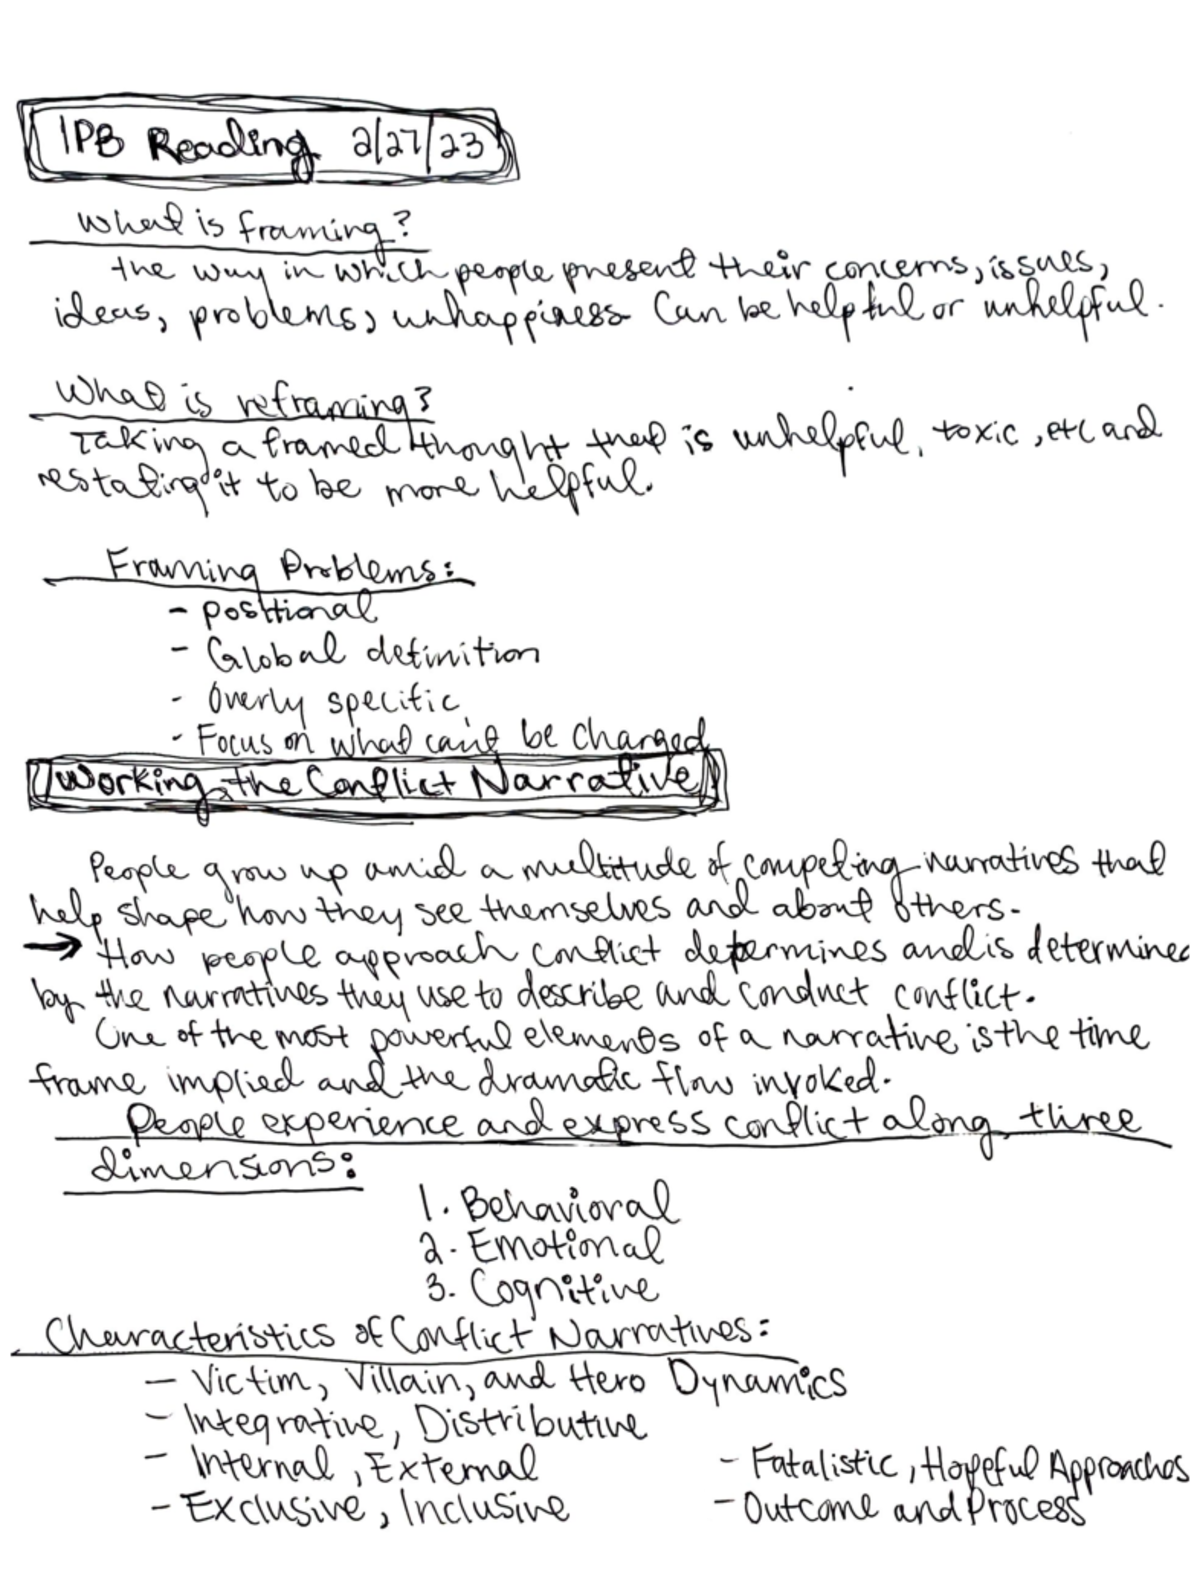 IPB Reading 2/27/23
What is framing?
the way in which people present their concerns, issues,
ideas, problems, unhappiness. Can be helpful or unhelpful.
What is reframing?
Taking a framed thought that is unhelpful, toxic, etc and
restating it to be more helpful.
Framing Problems:
- positional
- Global definition
- Overly specific
- Focus on what can't be changed
Working the Conflict Narrative
People grow up amid a multitude of competing narratives that
help shape how they see themselves and about others.
→ How people approach conflict determines and is determined
by the narratives they use to describe and conduct conflict.
One of the most powerful elements of a narrative is the time
frame implied and the dramatic flow invoked.
People experience and express conflict along three
dimensions:
1. Behavioral
2. Emotional
3. Cognitive
Characteristics of Conflict Narratives:
- Victim, Villain, and Hero Dynamics
- Integrative, Distributive
- Internal, External
- Exclusive, Inclusive
- Fatalistic, Hopeful Approaches
- Outcome and Process